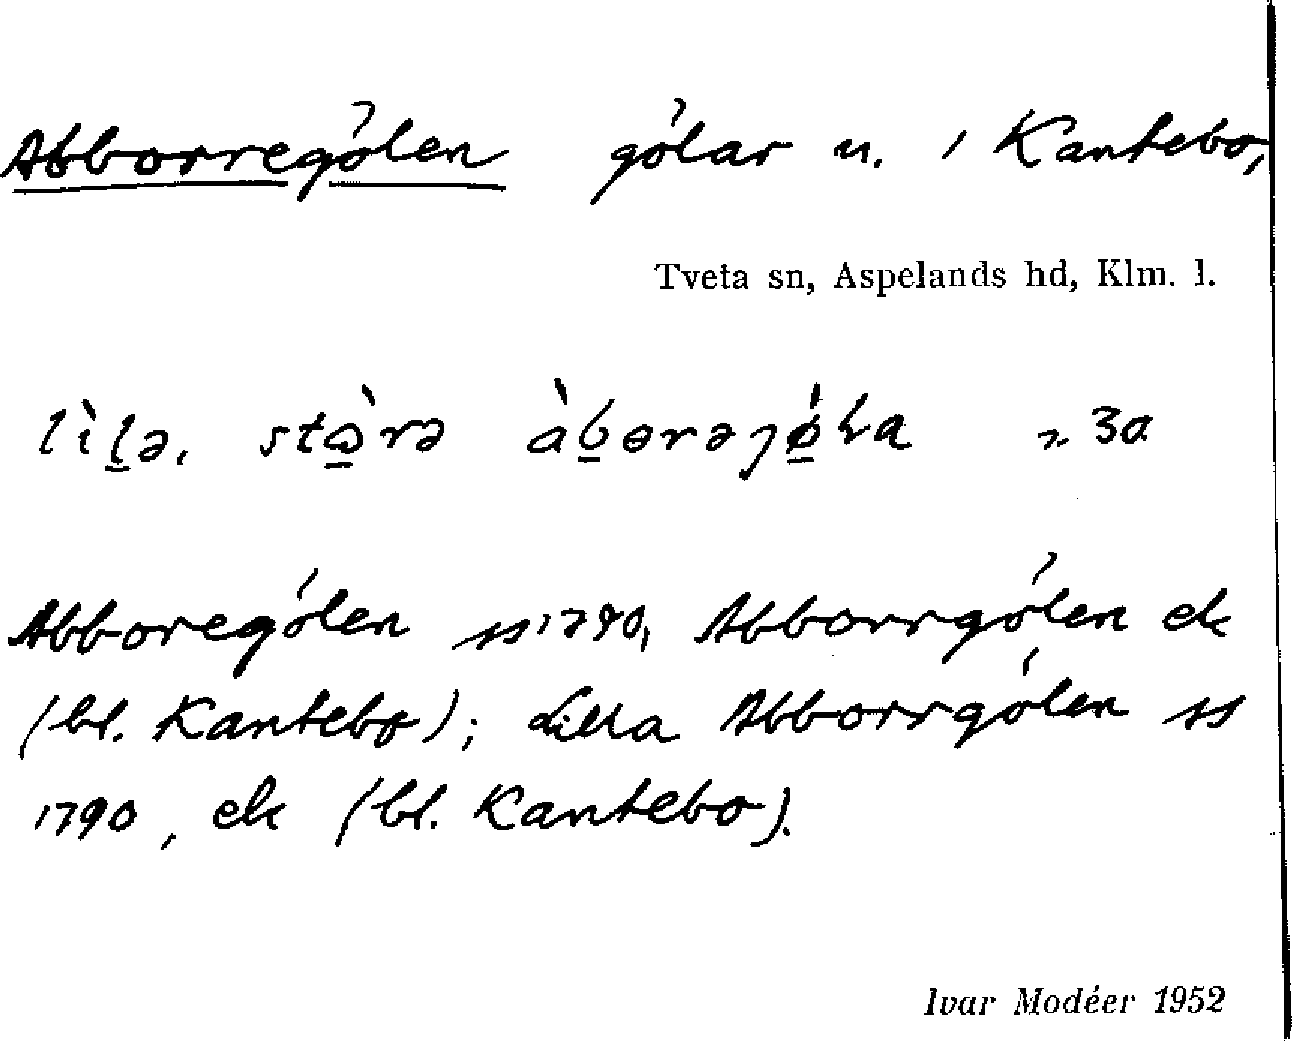 Abborrególen gólar n. i Kantebo,
Tveta sn, Aspelands hd, Klm. l.
Abborególen ss 1790, Abborrgólen ek
(bl. Kantebo); Lilla Abborrgólen ss
1790, ek (bl. Kantebo).
Ivar Modéer 1952